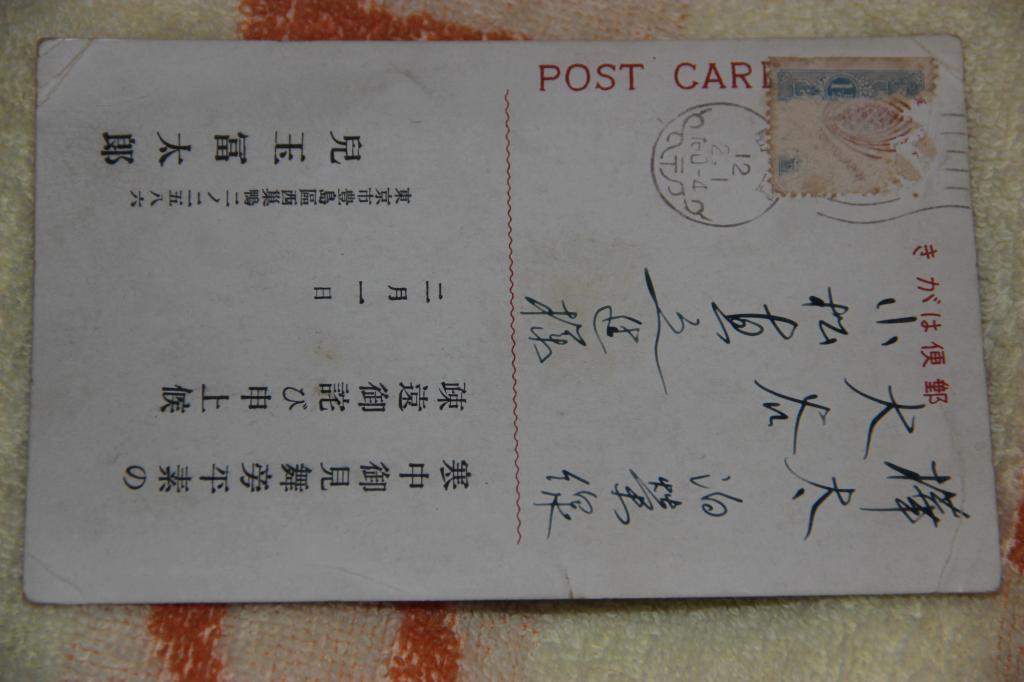 POST CARD
郵便はがき
12
2.1
樺太 泊榮線
大谷
小松
様
寒中御見舞旁平素の
疎遠御詫び申上候
二月一日
東京市豊島區西巣鴨二ノ二五八六
兒玉富太郎